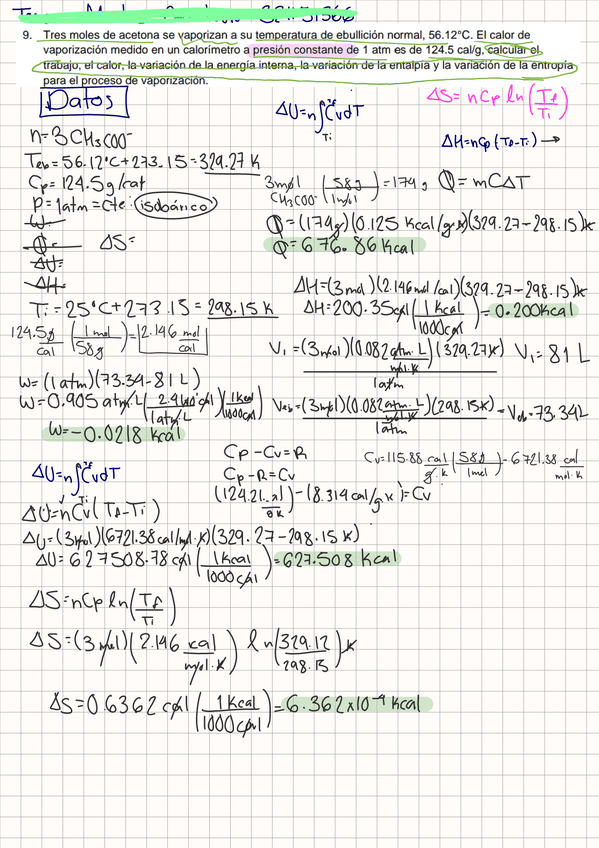 9. Tres moles de acetona se vaporizan a su temperatura de ebullición normal, 56.12°C. El calor de
vaporización medido en un calorímetro a presión constante de 1 atm es de 124.5 cal/g, calcular el
trabajo, el calor, la variación de la energía interna, la variación de la entalpia y la variación de la entropía
para el proceso de vaporización.
Datos
ΔU=n∫CvdT
Ti
ΔS=nCp ln(Tf/Ti)
ΔH=nCp(Tf-Ti)→
n=3CH3COO-
Teb=56.12°C+273.15=329.27 K
Cp=124.5g/cal
P=1atm=cte: isobárico
W=
Q=
ΔS=
ΔU=
ΔH=
Ti=25°C+273.15=298.15 K
124.5g/cal (1mol/58g)=2.146 mol/cal
3mol CH3COO- (58g/1mol)=174g
Q=mCΔT
Q=(174g)(0.125 Kcal/g·K)(329.27-298.15)K
Q=676.86Kcal
ΔH=(3mol)(2.146mol/cal)(329.27-298.15)K
ΔH=200.35cal(1Kcal/1000cal)=0.200Kcal
V1=(3mol)(0.082atm·L/mol·K)(329.27K)/1atm V1=81L
Veb=(3mol)(0.082atm·L/mol·K)(298.15K)/1atm=Veb=73.34L
W=(1atm)(73.34-81L)
W=-0.0218 kcal
ΔU=n∫CvdT
Ti
Cp-Cv=R
Cp-R=Cv
-(8.314cal/g·K)=Cv
Cv=115.88 cal/g·K (58g/1mol)=6721.38 cal/mol·K
ΔU=nCv(Tf-Ti)
ΔU=(3mol)(6721.38cal/mol·K)(329.27-298.15K)
ΔU=627508.78cal(1Kcal/1000cal)=627.508 Kcal
ΔS=nCp ln(Tf/Ti)
ΔS=(3mol)(2.146 cal/mol·K) ln(329.12/298.15)K
ΔS=0.6362cal(1Kcal/1000cal)=6.362x10-4 Kcal